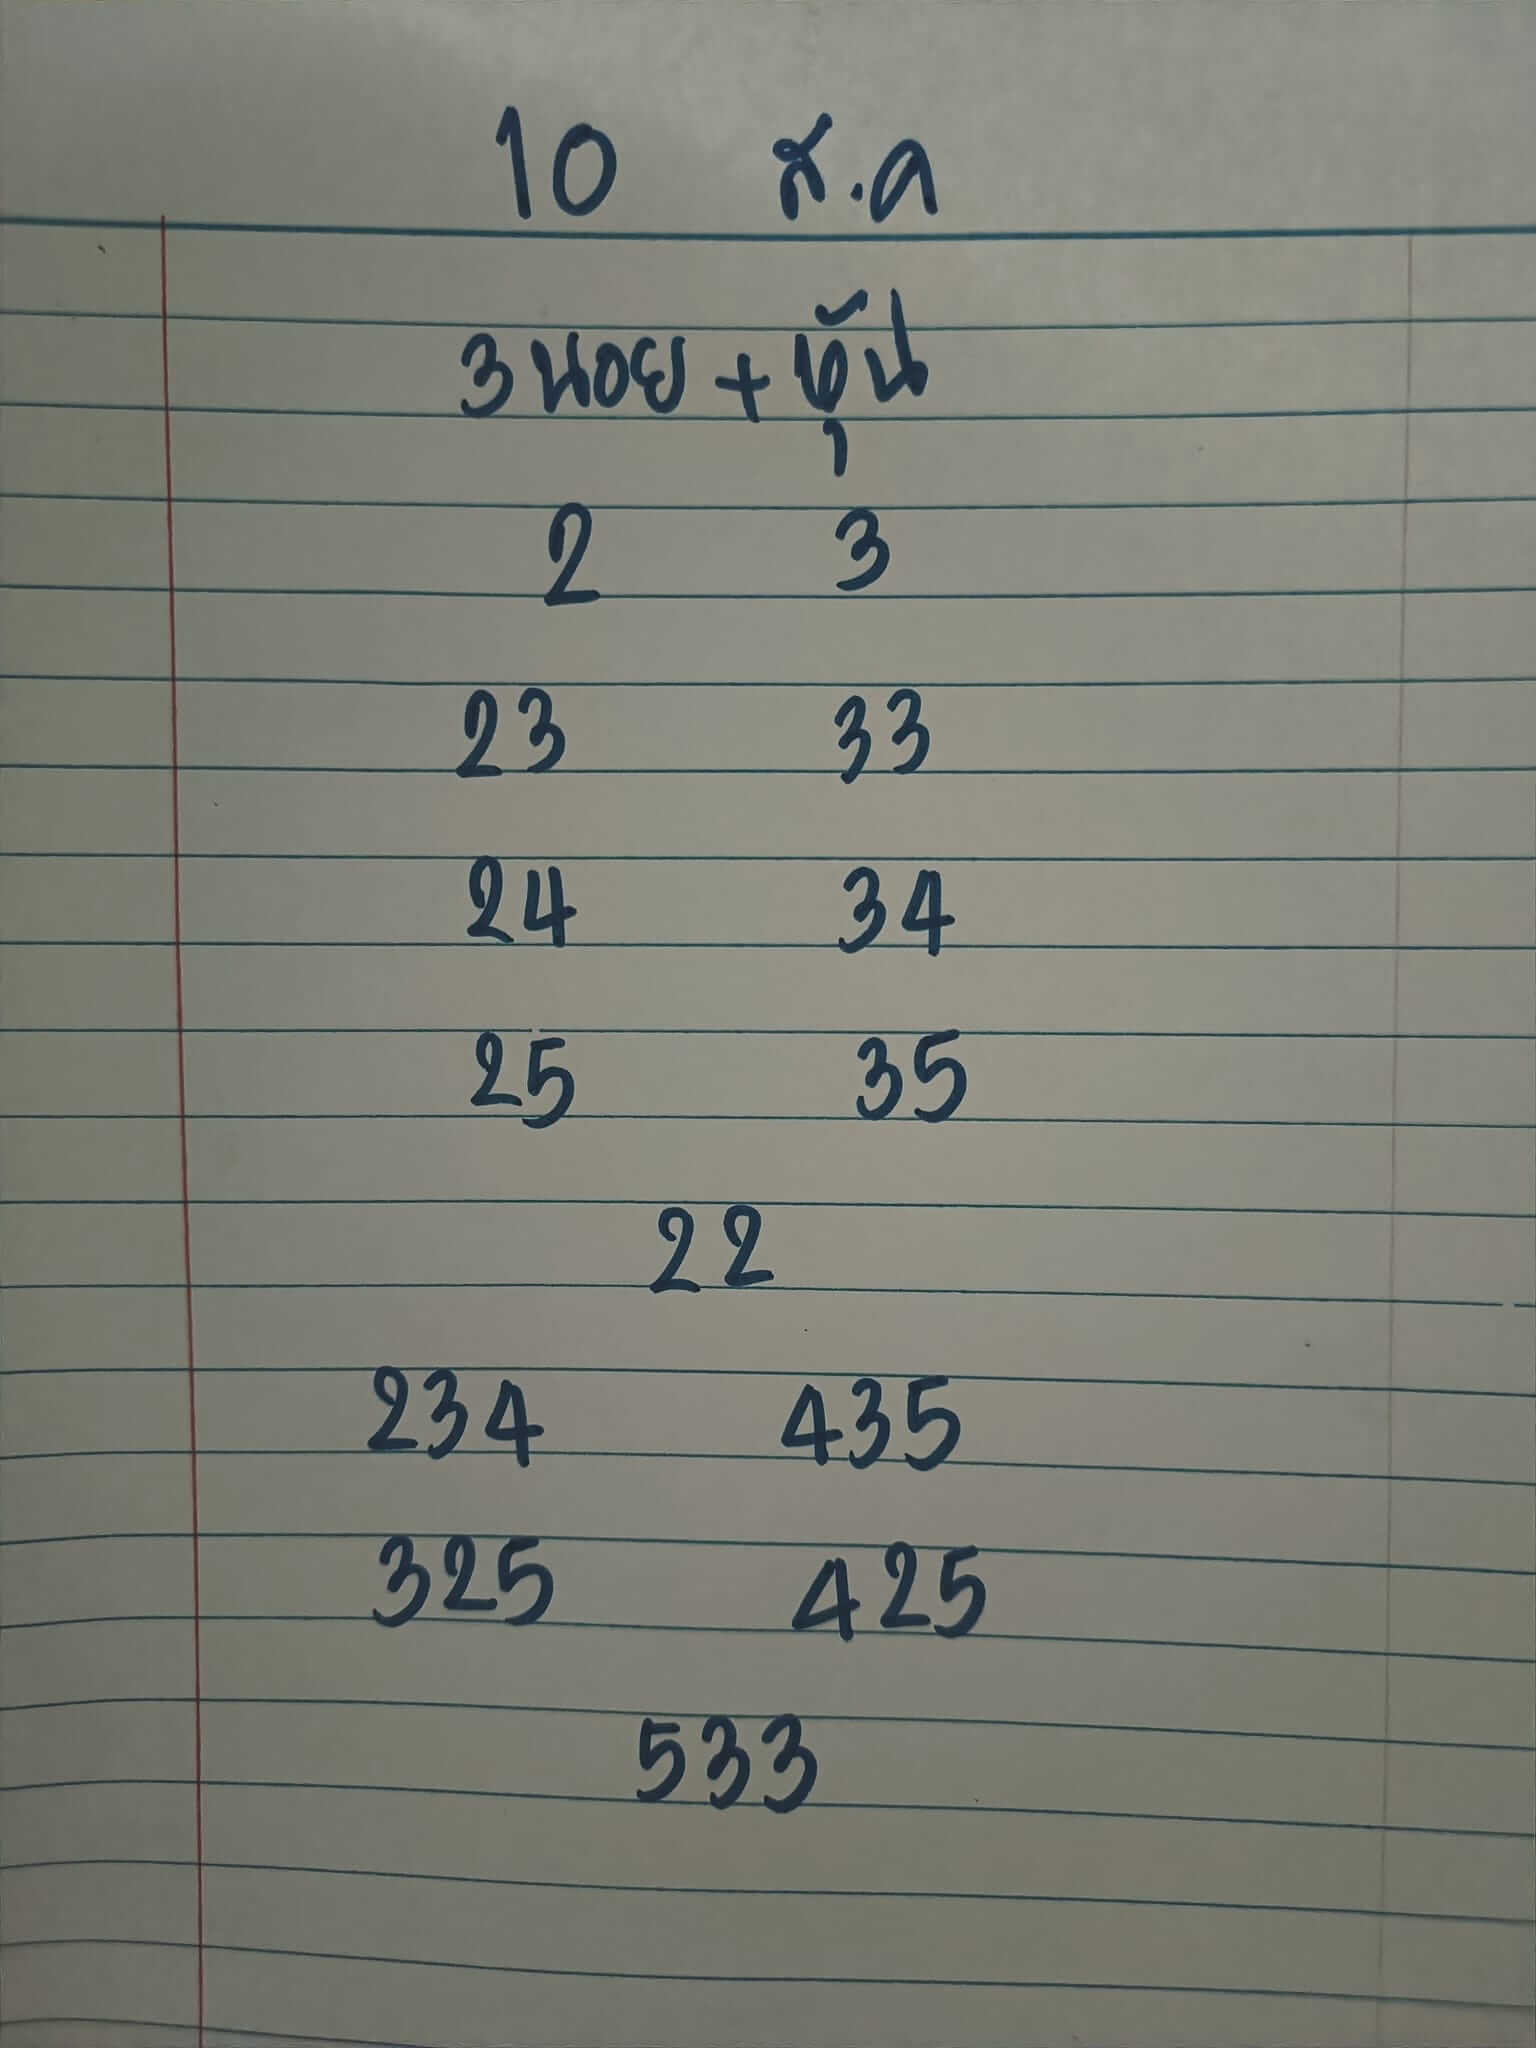 10 ส.ค
3 นอย + หุ้น
2 3
23 33
24 34
25 35
22
234 435
325 425
533